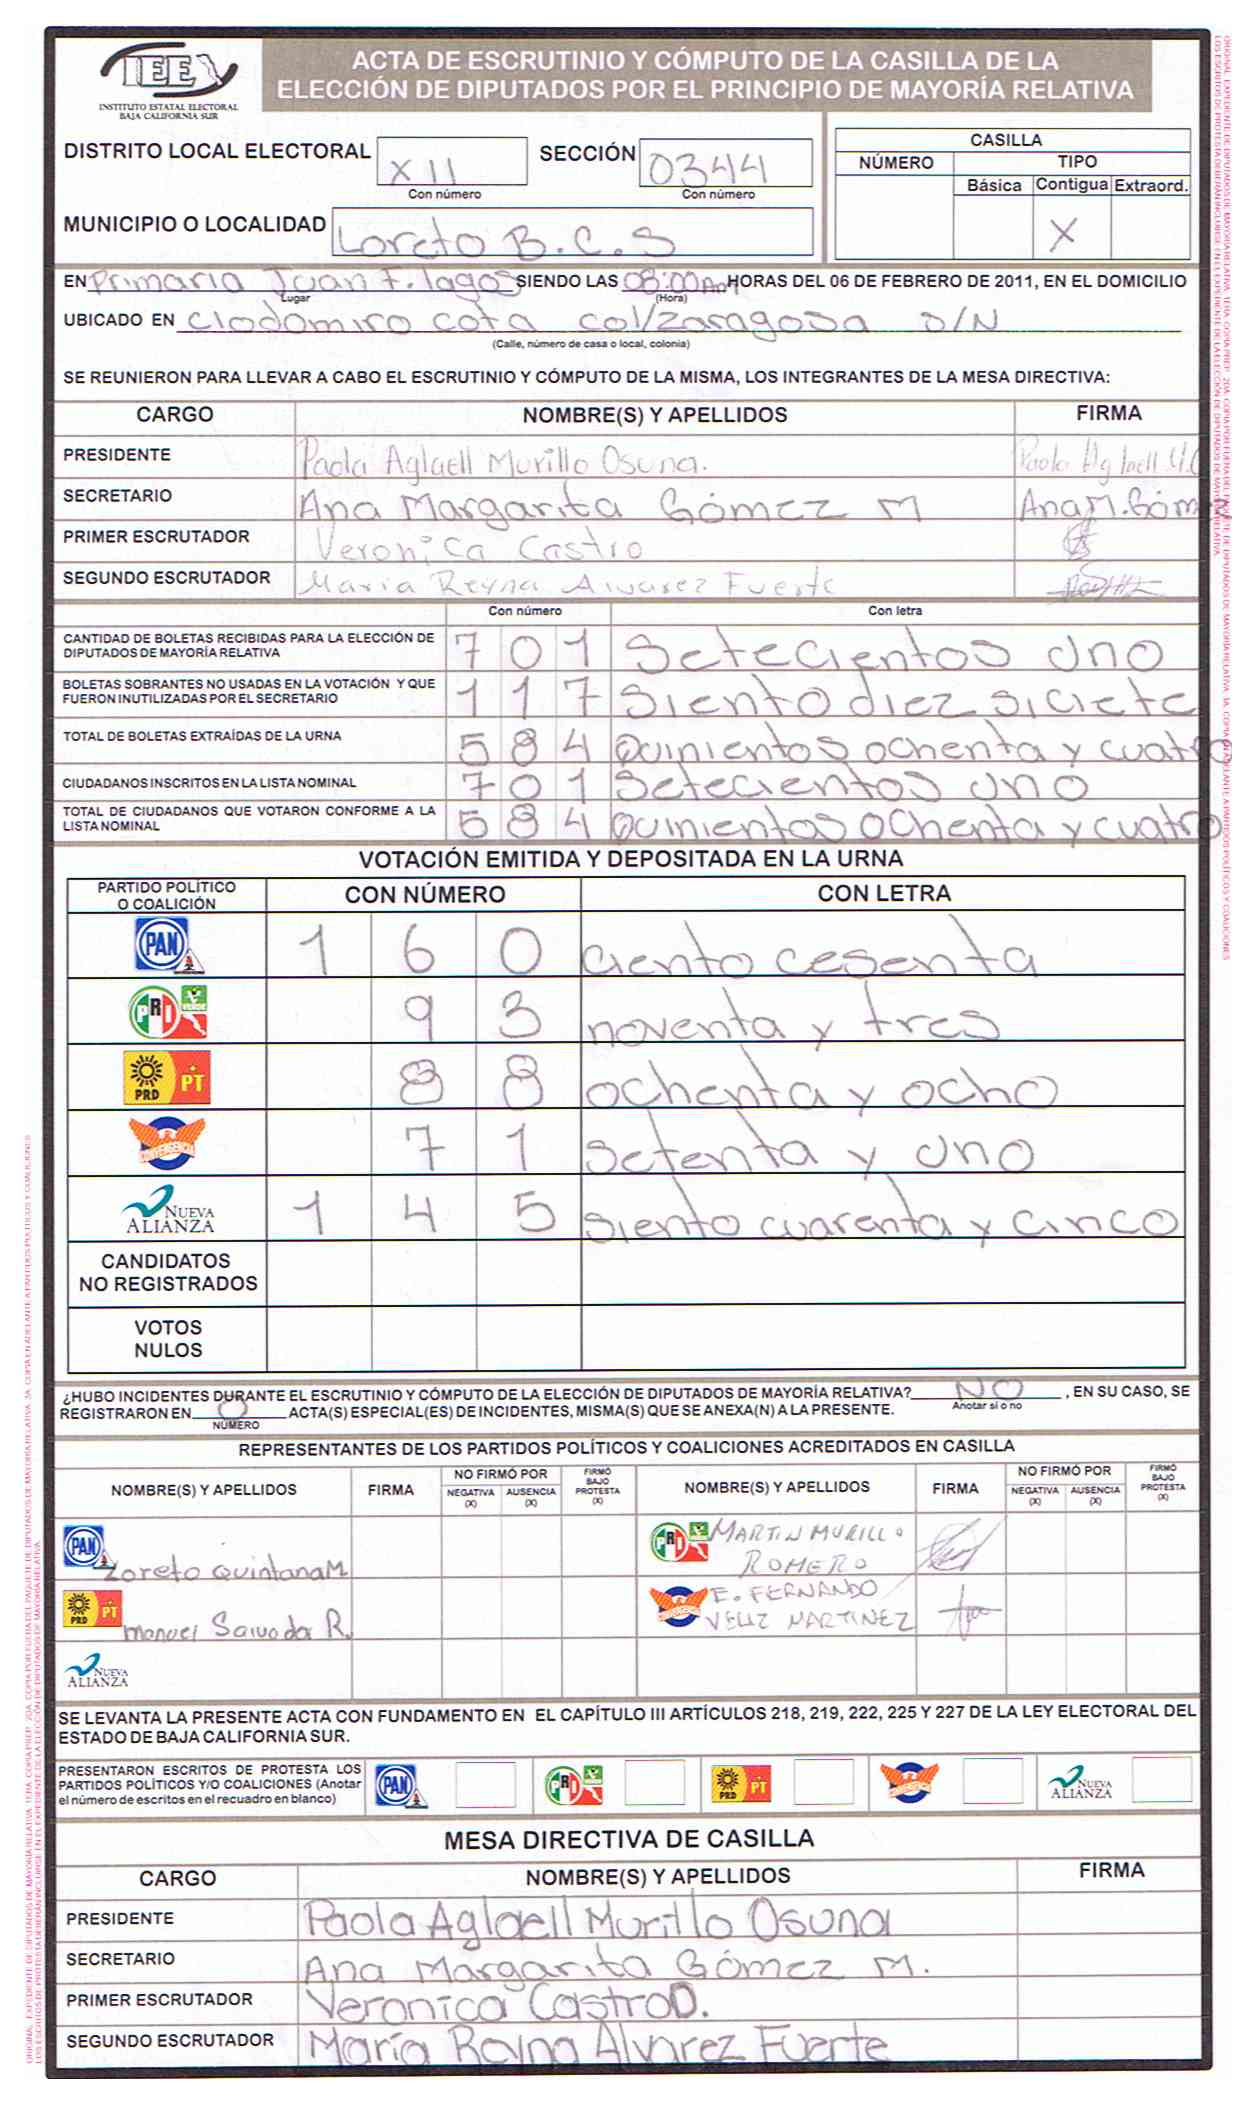 IEE
INSTITUTO ESTATAL ELECTORAL
BAJA CALIFORNIA SUR
ACTA DE ESCRUTINIO Y CÓMPUTO DE LA CASILLA DE LA
ELECCIÓN DE DIPUTADOS POR EL PRINCIPIO DE MAYORÍA RELATIVA
DISTRITO LOCAL ELECTORAL XII SECCIÓN 0344
Con número Con número
MUNICIPIO O LOCALIDAD Loreto B.C.S
CASILLA
NÚMERO TIPO
Básica Contigua Extraord.
X
EN Primaria Juan F. lagos SIENDO LAS 08:00 Am HORAS DEL 06 DE FEBRERO DE 2011, EN EL DOMICILIO
Lugar (Hora)
UBICADO EN Clodomiro cota col/zaragosa S/N
(Calle, número de casa o local, colonia)
SE REUNIERON PARA LLEVAR A CABO EL ESCRUTINIO Y CÓMPUTO DE LA MISMA, LOS INTEGRANTES DE LA MESA DIRECTIVA:
CARGO NOMBRE(S) Y APELLIDOS FIRMA
PRESIDENTE Paola Aglaell Murillo Osuna.
SECRETARIO Ana Margarita Gómez M Ana M. Gómez
PRIMER ESCRUTADOR Veronica Castro
SEGUNDO ESCRUTADOR Maria Reyna Alvarez Fuerte
Con número Con letra
CANTIDAD DE BOLETAS RECIBIDAS PARA LA ELECCIÓN DE
DIPUTADOS DE MAYORÍA RELATIVA 701 Setecientos uno
BOLETAS SOBRANTES NO USADAS EN LA VOTACIÓN Y QUE
FUERON INUTILIZADAS POR EL SECRETARIO 117 Siento diez siciete
TOTAL DE BOLETAS EXTRAÍDAS DE LA URNA 584 quinientos ochenta y cuatro
CIUDADANOS INSCRITOS EN LA LISTA NOMINAL 701 Setecientos uno
TOTAL DE CIUDADANOS QUE VOTARON CONFORME A LA
LISTA NOMINAL 584 quinientos ochenta y cuatro
VOTACIÓN EMITIDA Y DEPOSITADA EN LA URNA
PARTIDO POLÍTICO
O COALICIÓN CON NÚMERO CON LETRA
PAN 1 6 0 ciento cesenta
PRI VERDE 9 3 noventa y tres
PRD PT 8 8 ochenta y ocho
CONVERGENCIA 7 1 Setenta y uno
NUEVA ALIANZA 1 4 5 siento cuarenta y cinco
CANDIDATOS
NO REGISTRADOS
VOTOS
NULOS
¿HUBO INCIDENTES DURANTE EL ESCRUTINIO Y CÓMPUTO DE LA ELECCIÓN DE DIPUTADOS DE MAYORÍA RELATIVA? NO , EN SU CASO, SE
Anotar si o no
REGISTRARON EN 0 ACTA(S) ESPECIAL(ES) DE INCIDENTES, MISMA(S) QUE SE ANEXA(N) A LA PRESENTE.
NÚMERO
REPRESENTANTES DE LOS PARTIDOS POLÍTICOS Y COALICIONES ACREDITADOS EN CASILLA
NOMBRE(S) Y APELLIDOS FIRMA NO FIRMÓ POR NEGATIVA (X) AUSENCIA (X) FIRMÓ BAJO PROTESTA (X) NOMBRE(S) Y APELLIDOS FIRMA NO FIRMÓ POR NEGATIVA (X) AUSENCIA (X) FIRMÓ BAJO PROTESTA (X)
PAN Loreto Quintana M PRI MARTIN MURILLO
ROMERO
PRD PT manuel Salvador R. E. FERNANDO
VELIZ MARTINEZ
NUEVA ALIANZA
SE LEVANTA LA PRESENTE ACTA CON FUNDAMENTO EN EL CAPÍTULO III ARTÍCULOS 218, 219, 222, 225 Y 227 DE LA LEY ELECTORAL DEL
ESTADO DE BAJA CALIFORNIA SUR.
PRESENTARON ESCRITOS DE PROTESTA LOS
PARTIDOS POLÍTICOS Y/O COALICIONES (Anotar
el número de escritos en el recuadro en blanco) PAN PRI PRD PT CONVERGENCIA NUEVA ALIANZA
MESA DIRECTIVA DE CASILLA
CARGO NOMBRE(S) Y APELLIDOS FIRMA
PRESIDENTE Paola Aglaell Murillo Osuna
SECRETARIO Ana Margarita Gómez M.
PRIMER ESCRUTADOR Veronica Castro D.
SEGUNDO ESCRUTADOR María Reyna Alvarez Fuerte